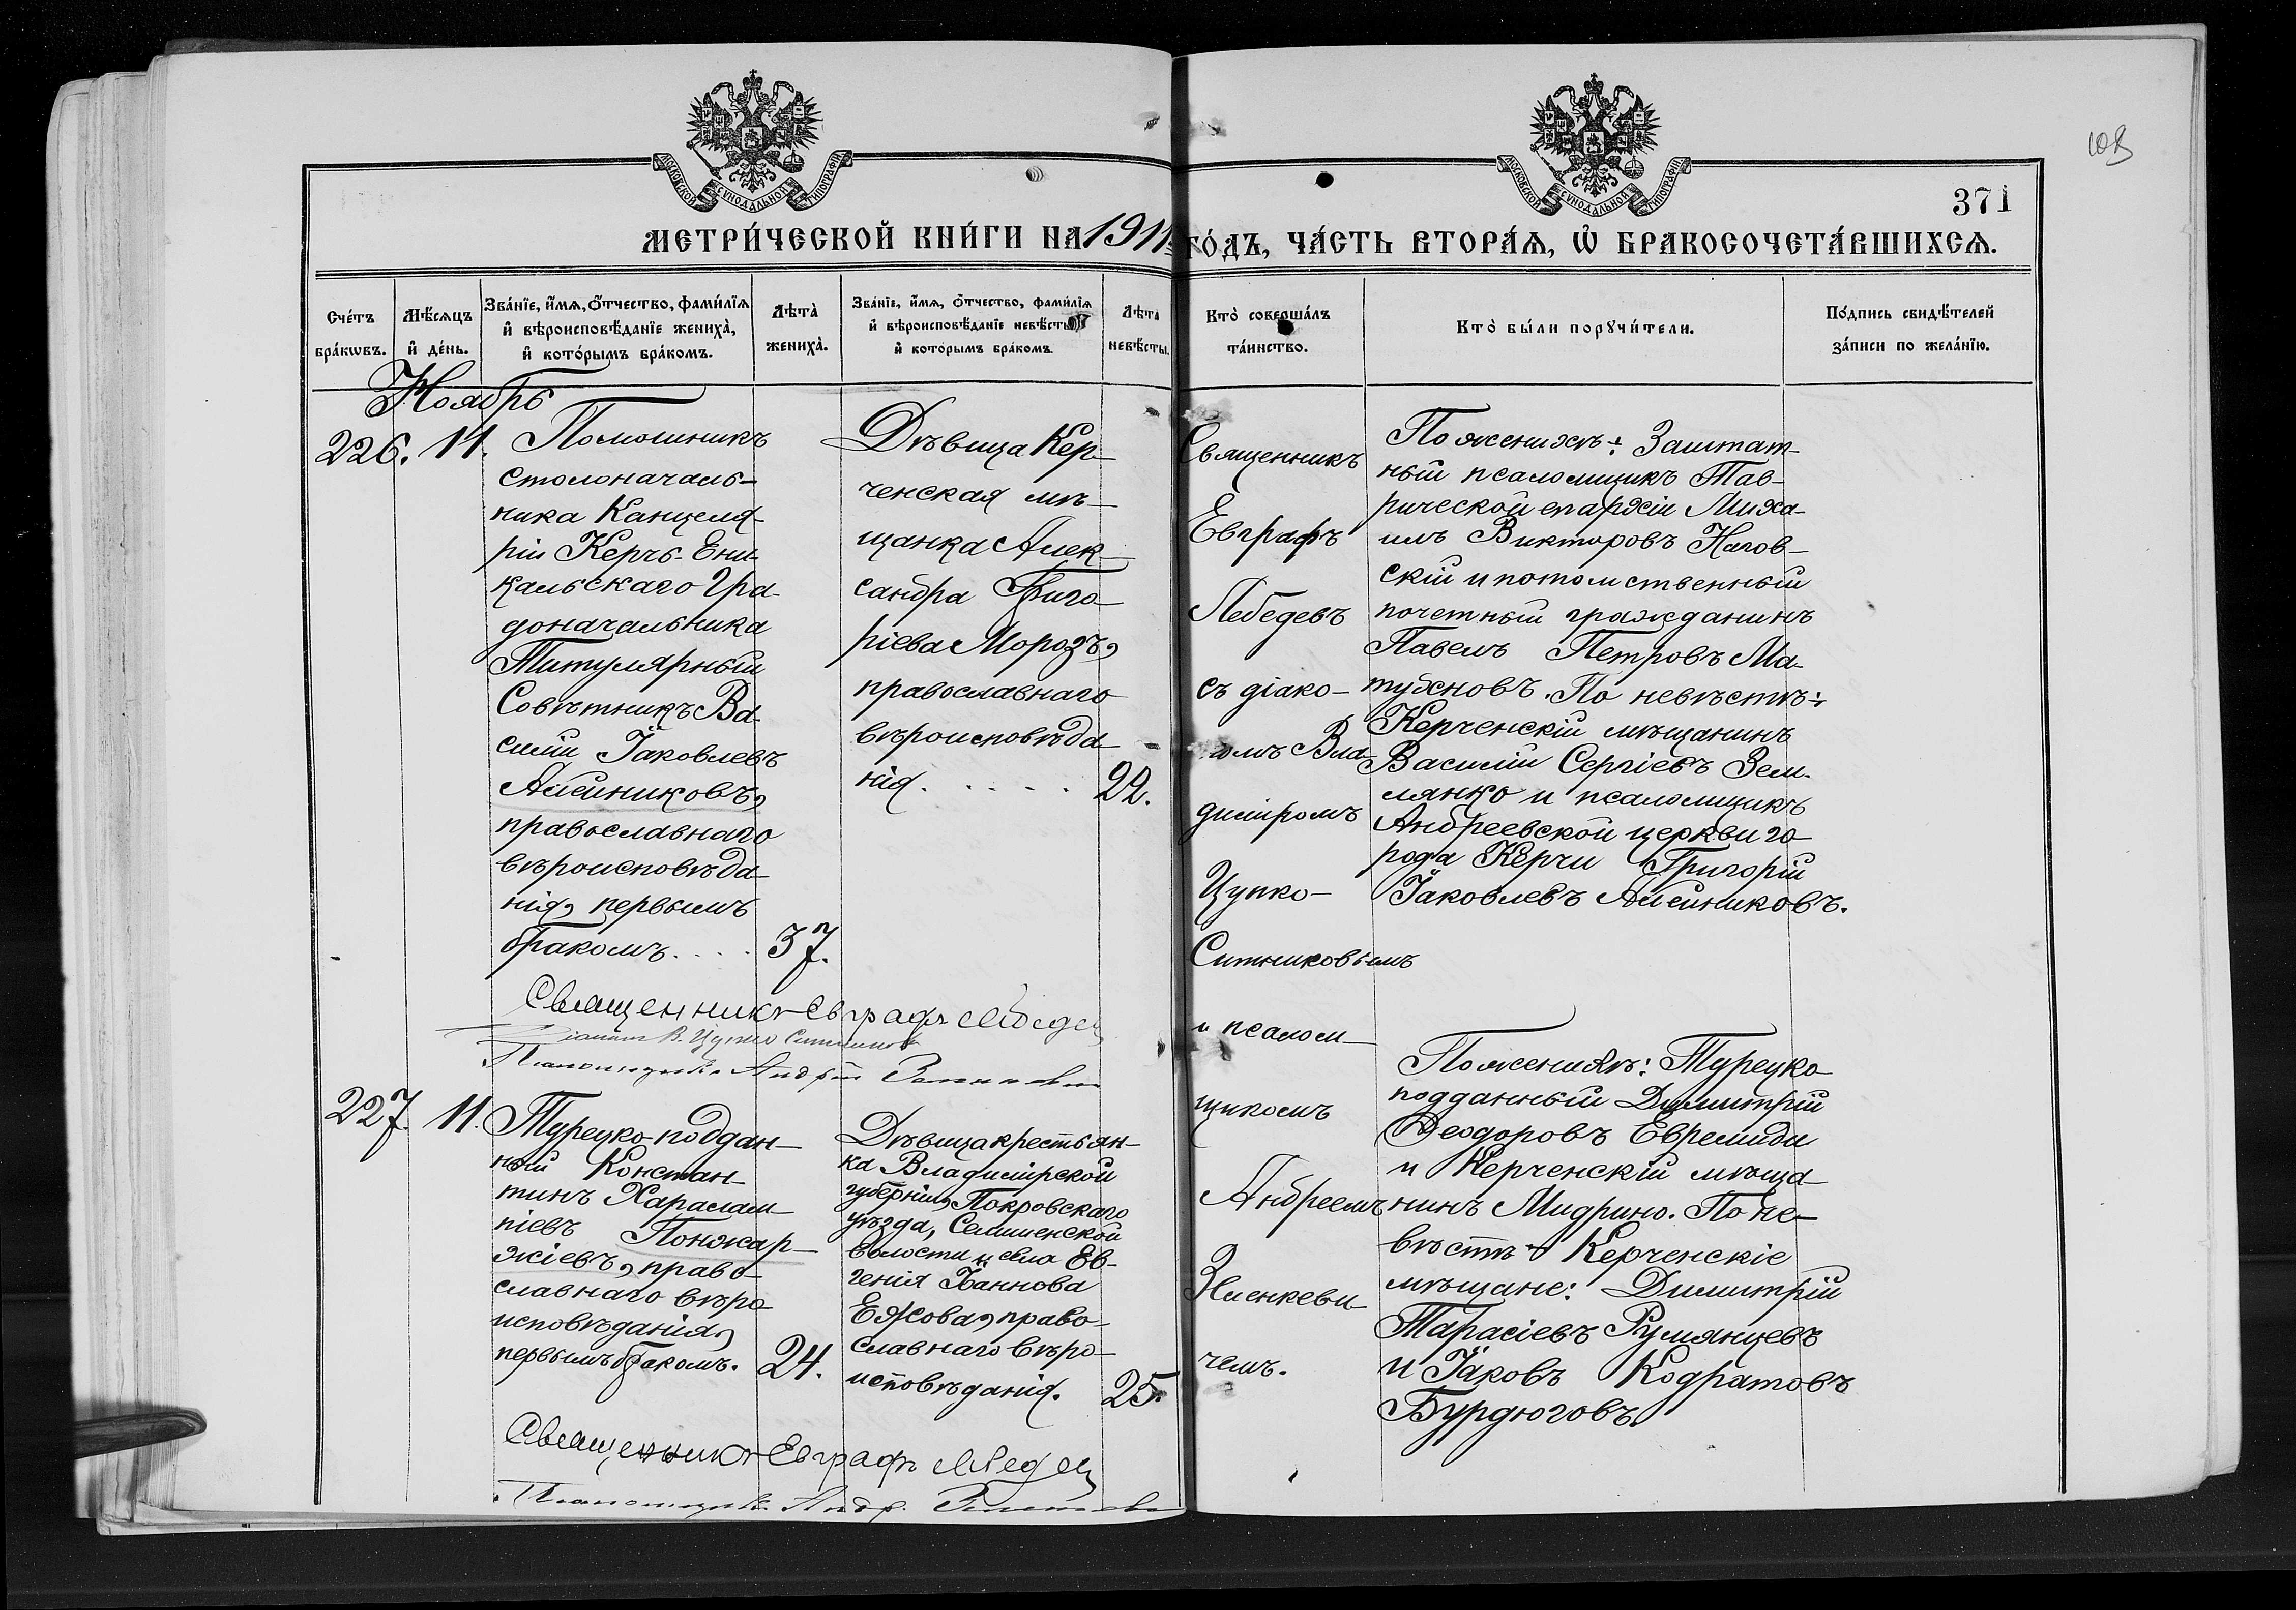 МОСКОВСКОЙ СѴНОДАЛЬНОЙ ТИПОГРАФІИ
МОСКОВСКОЙ СѴНОДАЛЬНОЙ ТИПОГРАФІИ
103
371
МЕТРИ́ЧЕСКОЙ КНИ́ГИ НА 1911 ГО́ДЪ, ЧА́СТЬ ВТОРА́Ѧ, Ѡ҆ БРАКОСОЧЕТА́ВШИХСѦ.
Сче́тъ
бра́кѡвъ.
Мѣ́сѧцъ
и҆ де́нь.
Зва́нїе, и҆́мѧ, ѻ҆́тчество, фами́лїѧ
и҆ вѣроисповѣ́данїе жениха̀,
и҆ кото́рымъ бра́комъ.
Лѣта̀
жениха̀.
Зва́нїе, и҆́мѧ, ѻ҆́тчество, фами́лїѧ
и҆ вѣроисповѣ́данїе невѣ́сты
и҆ кото́рымъ бра́комъ
Лѣта̀
невѣ́сты.
Кто̀ соверша́лъ
та́инство.
Кто̀ бы́ли порꙋчи́тели.
По́дпись свидѣ́телей
за́писи по жела́нїю.
Ноябрь
226. 11.
Помошникъ
столоначаль-
ника Канцеля-
ріи Керчь-Ени-
кальскаго Гра-
доначальника
Титулярный
Совѣтникъ Ва-
силій Іаковлевъ
Алейниковъ,
православнаго
вѣроисповѣда-
нія, первымъ
бракомъ. . . . 37.
Дѣвица Кер-
ченская мѣ-
щанка Алек-
сандра Григо-
ріева Морозъ,
православнаго
вѣроисповѣда-
нія. . . . . . 22.
Священникъ
Евграфъ
Лебедевъ
съ діако-
номъ Вла-
диміромъ
Цупко-
Ситниковымъ
и псалом-
щикомъ
Андреемъ
Зненкеви-
чемъ.
По женихѣ: Заштат-
ный псаломщикъ Тав-
рической епархіи Миха-
илъ Викторовъ Нагов-
скій и потомственный
почетный гражданинъ
Павелъ Петровъ Ма-
тухновъ. По невѣстѣ:
Керченскій мѣщанинъ
Василій Сергіевъ Зем-
лянко и псаломщикъ
Андреевской церкви го-
рода Керчи Григорій
Іаковлевъ Алейниковъ.
Священникъ Евграфъ Лебедев
Діаконъ В. Цупко Ситников
Псаломщикъ Андрей
227. 11.
Турецко-поддан-
ный Констан-
тинъ Харалам-
піевъ Понжар-
жіевъ, право-
славнаго вѣро-
исповѣданія,
первымъ бракомъ. 24.
Дѣвица крестьян-
ка Владимірской
губерніи, Покровскаго
уѣзда, Селищенской
волости и села Ев-
генія Іоаннова
Ежова, право-
славнаго вѣро-
исповѣданія. 25.
По женихѣ: Турецко-
подданный Димитрій
Ѳеодоровъ Евремиди
и Керченскій мѣща-
нинъ Мидрино. По не-
вѣстѣ: Керченскіе
мѣщане: Димитрій
Тарасіевъ Румянцевъ
и Іаковъ Кодратовъ
Бурдюговъ.
Священникъ Евграфъ Лебедев
Псаломщикъ Андр.